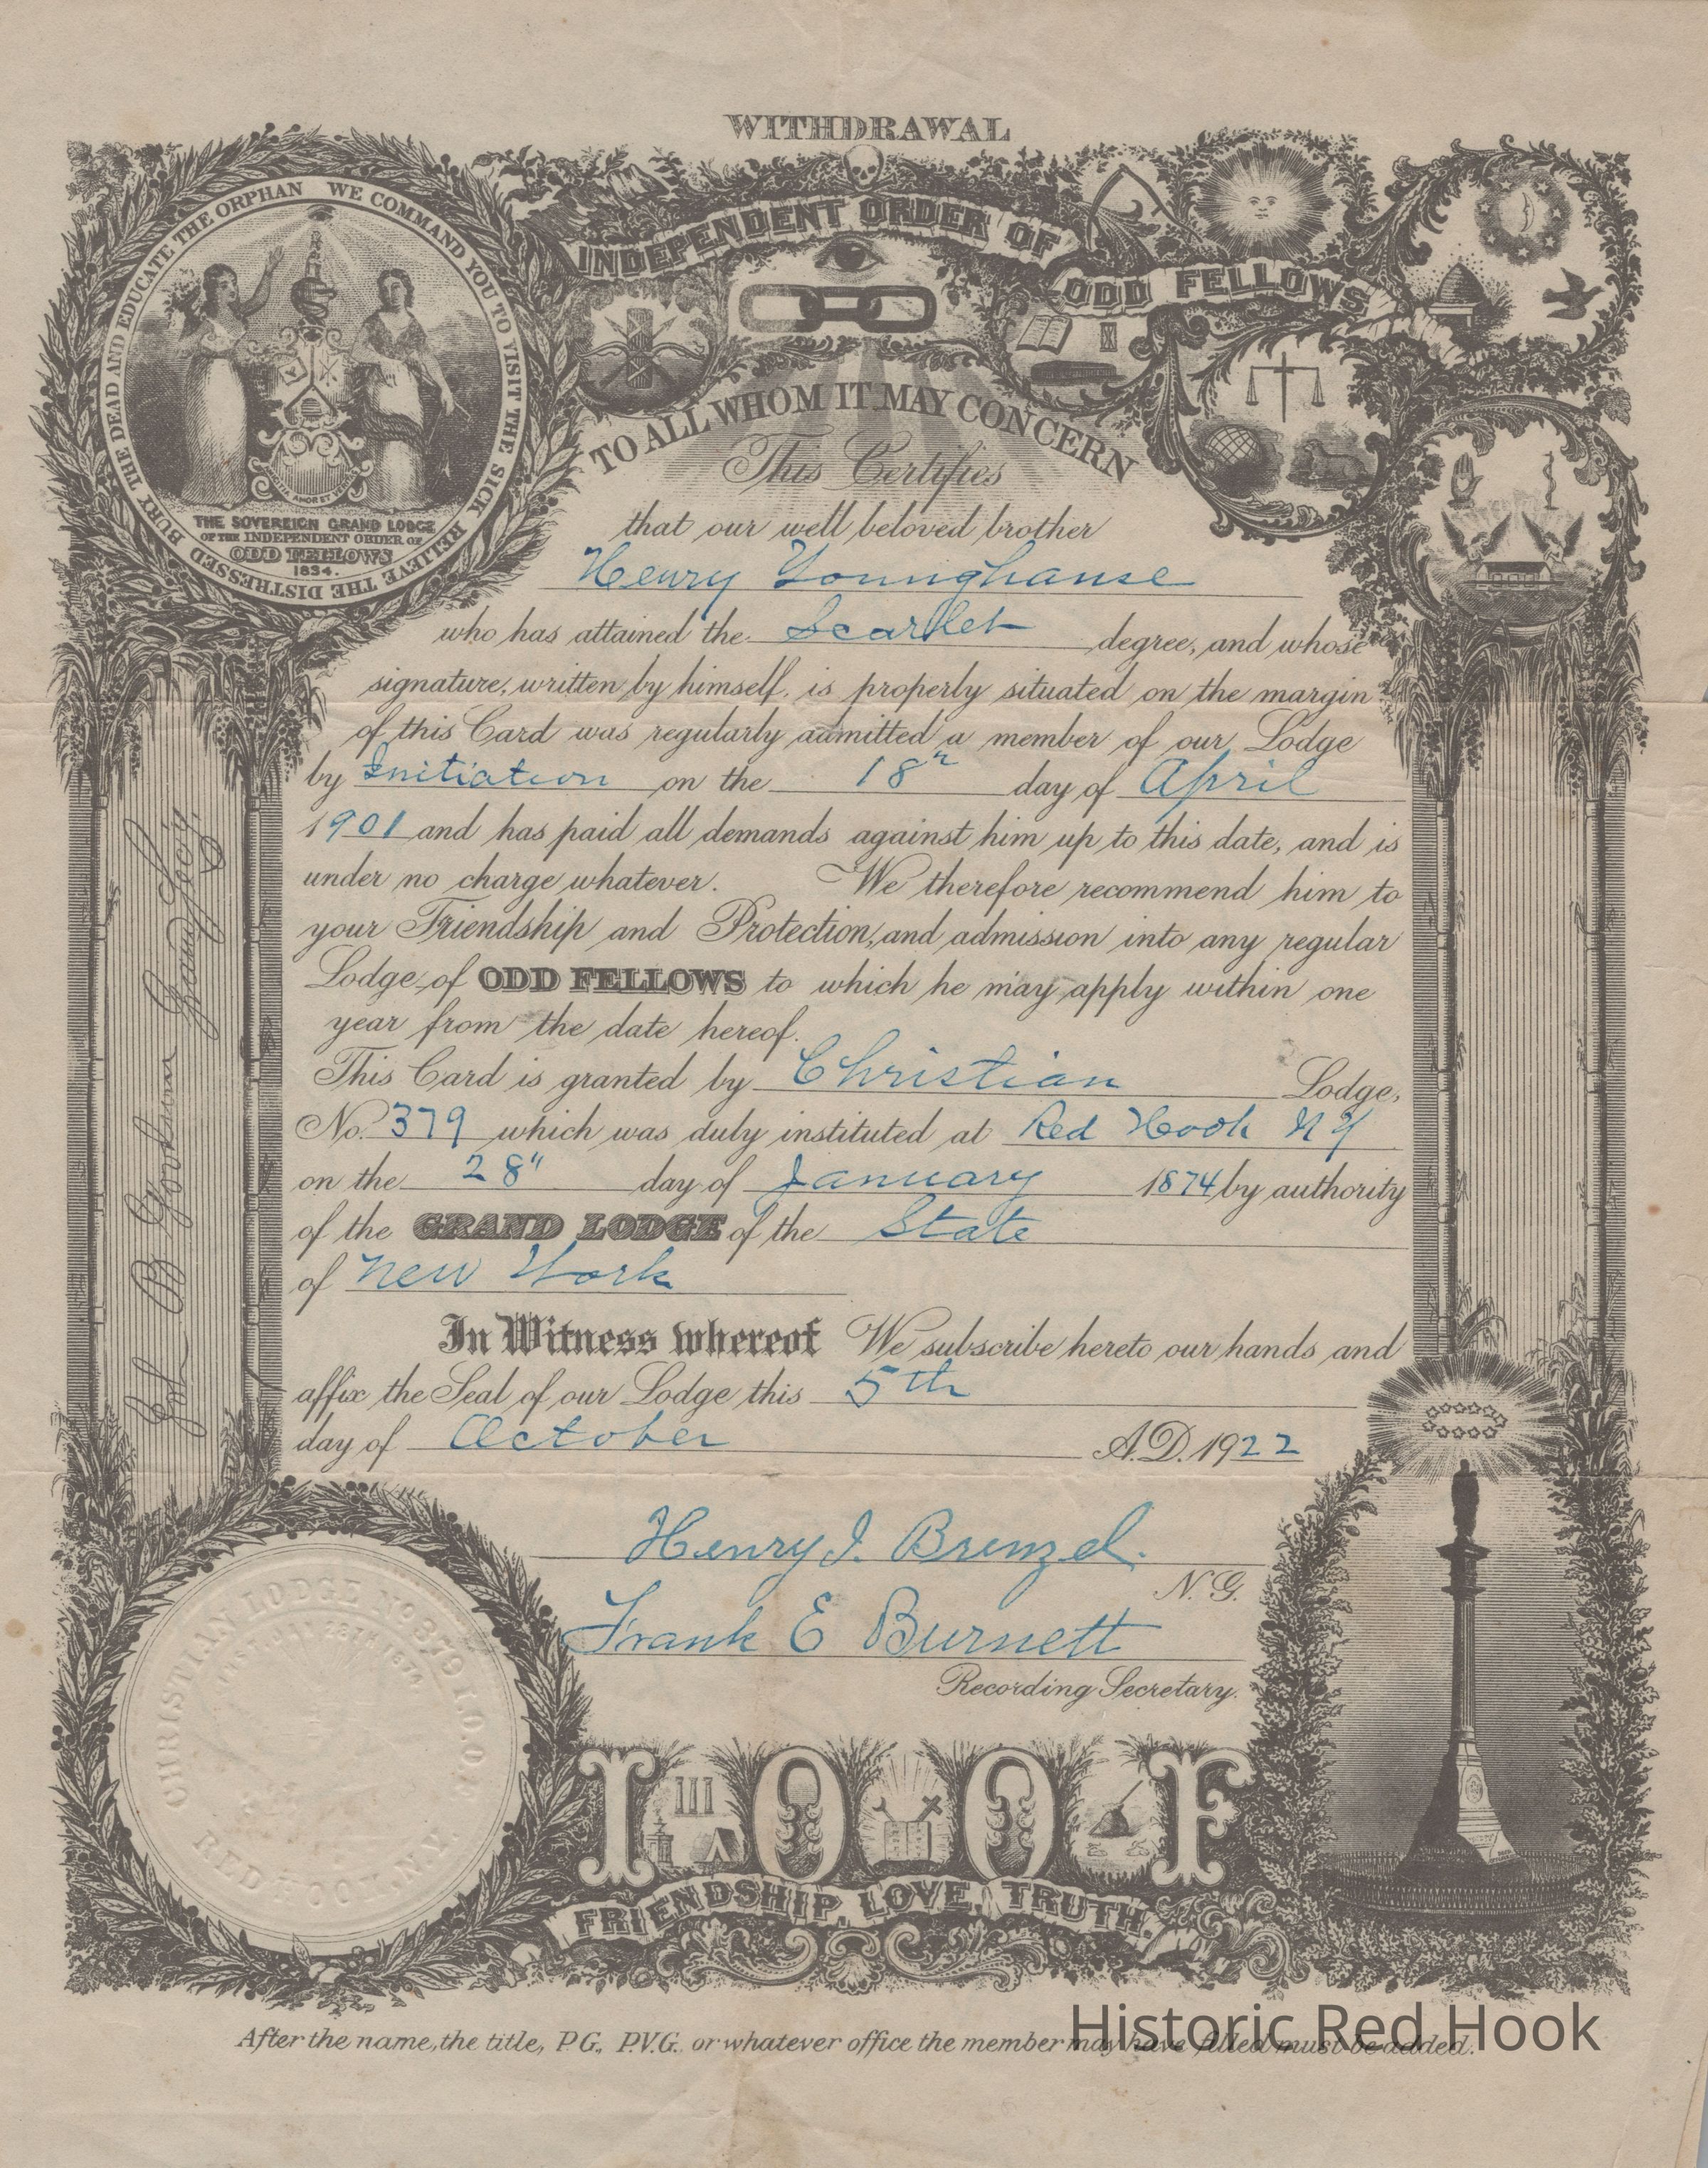 WITHDRAWAL
INDEPENDENT ORDER OF
ODD FELLOWS
WE COMMAND YOU TO VISIT THE SICK RELIEVE THE DISTRESSED BURY THE DEAD AND EDUCATE THE ORPHAN
THE SOVEREIGN GRAND LODGE
OF THE INDEPENDENT ORDER OF
ODD FELLOWS
1834.
TO ALL WHOM IT MAY CONCERN
This Certifies
that our well beloved brother
Henry Younghanse
who has attained the Scarlet degree, and whose
signature, written by himself, is properly situated on the margin
of this Card was regularly admitted a member of our Lodge
by Initiation on the 18" day of April
1901 and has paid all demands against him up to this date, and is
under no charge whatever. We therefore recommend him to
your Friendship and Protection, and admission into any regular
Lodge of ODD FELLOWS to which he may apply within one
year from the date hereof.
This Card is granted by Christian Lodge,
No. 379 which was duly instituted at Red Hook N Y
on the 28" day of January 1874 by authority
of the GRAND LODGE of the State
of New York
In Witness whereof We subscribe hereto our hands and
affix the Seal of our Lodge this 5th
day of October A.D. 1922
Henry J. Brenzel.
N.G.
Frank E Burnett
Recording Secretary.
B Grand Sec'y.
CHRISTIAN LODGE No 379 I.O.O.F.
28TH 1874
RED HOOK, N.Y.
I O O F
FRIENDSHIP, LOVE, TRUTH.
After the name, the title, P.G., P.V.G. or whatever office the member may have filled must be added.
Historic Red Hook